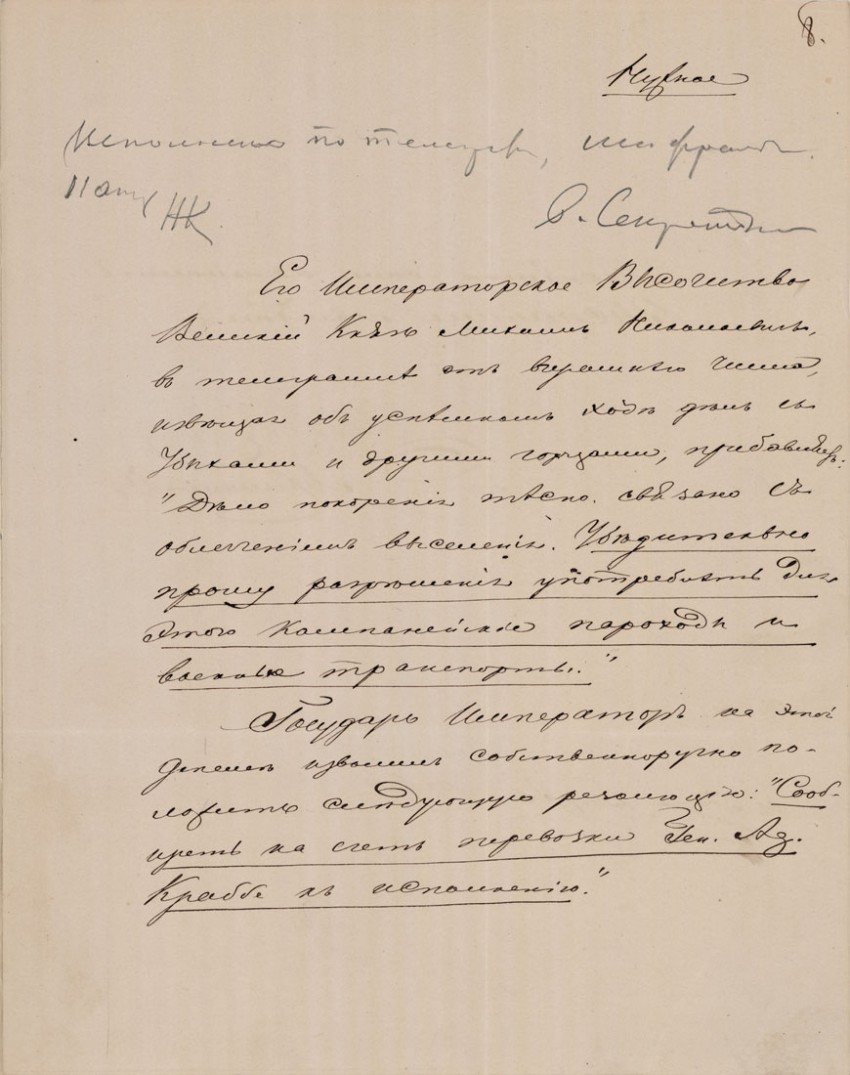 8.
Нужное
Исполнено по телегр, шифромъ.
11 апр ЖК
В. Секретно
Его Императорское Высочество
Великій Князь Михаилъ Николаевичъ,
въ телеграммѣ отъ вчерашняго числа,
извѣщая объ успѣшномъ ходѣ дѣлъ съ
Убыхами и другими горцами, прибавляетъ:
"Дѣло покоренія тѣсно связано съ
облегченіемъ выселенія. Убѣдительно
прошу разрѣшенія употребить для
этого Компанейскіе пароходы и
военные транспорты."
Государь Императоръ на этой
депешѣ изволилъ собственноручно по-
ложить слѣдующую резолюцію: "Сооб-
щить на счетъ перевозки Ген. Ад.
Краббе къ исполненію."